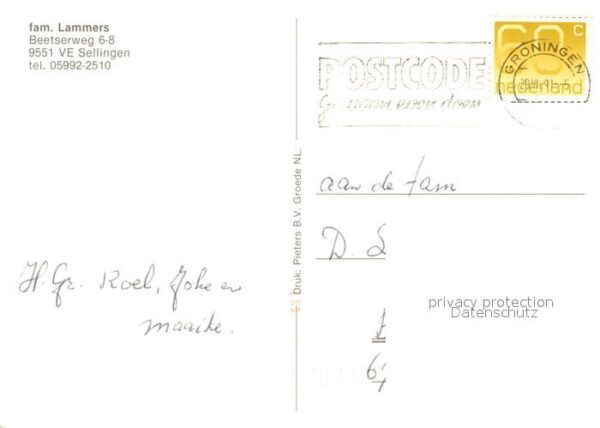 fam. Lammers
Beetserweg 6-8
9551 VE Sellingen
tel. 05992-2510
60 c
nederland
GRONINGEN
POSTCODE
Druk: Pieters B.V. Groede NL.
aan de fam
D. L
privacy protection
Datenschutz
H. Gr. Roel, Joke en
maaike.